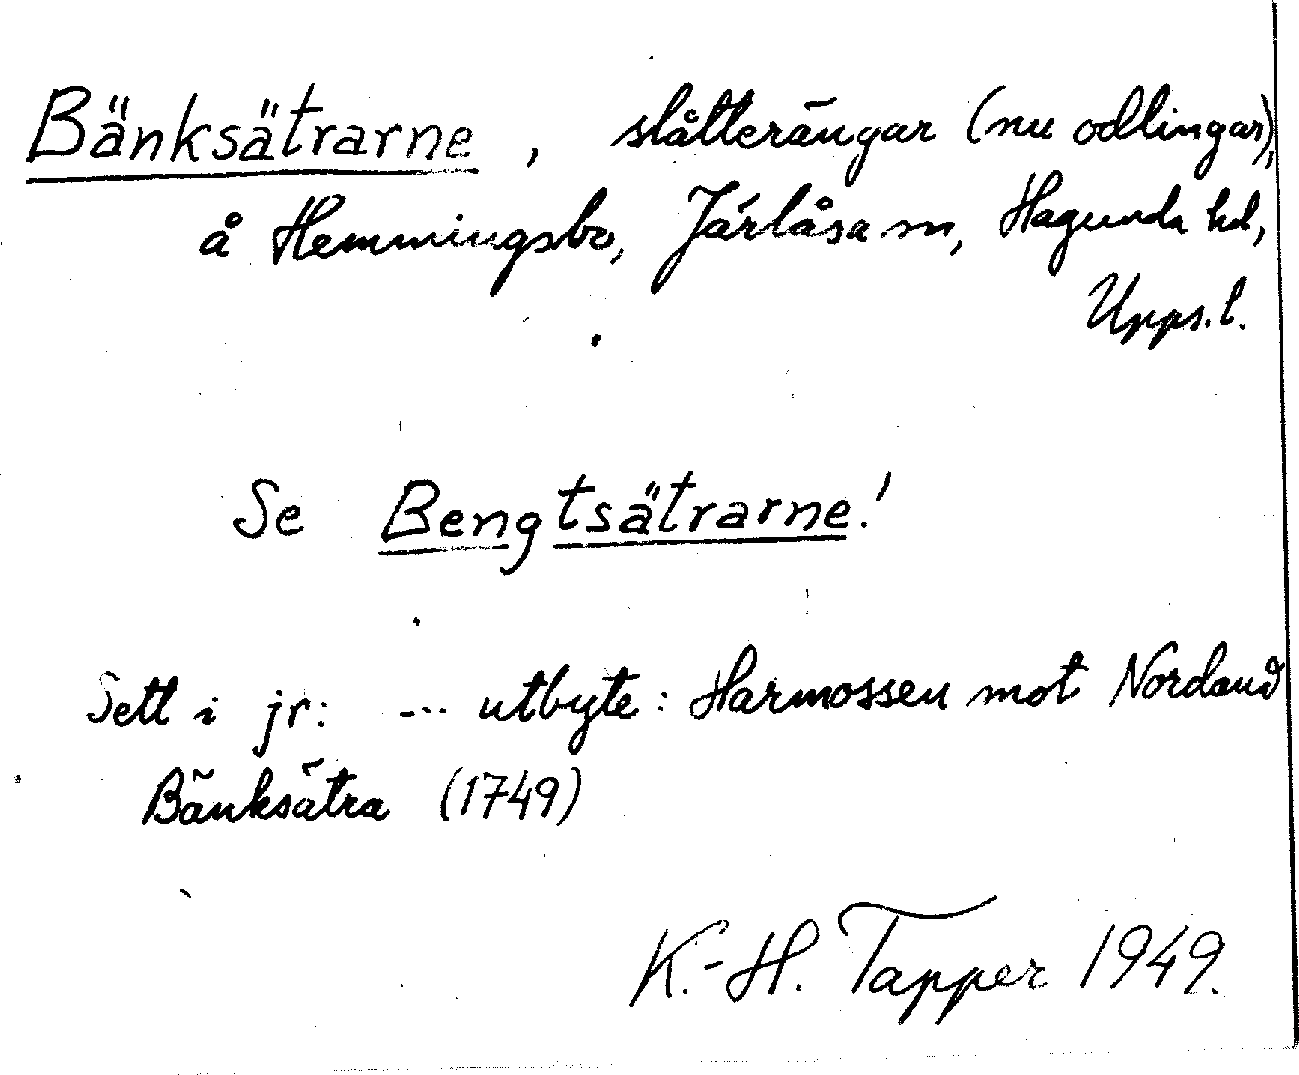 Bänksätrarne, slåtterängar (nu odlingar),
å Hemmingsbo, Järlåsa sn, Hagunda hd,
Upps. l.
Se Bengtsätrarne!
Sett i jr: --- utbyte: Harmossen mot Nordand
Bänksätra (1749)
K.-H. Tapper 1949.